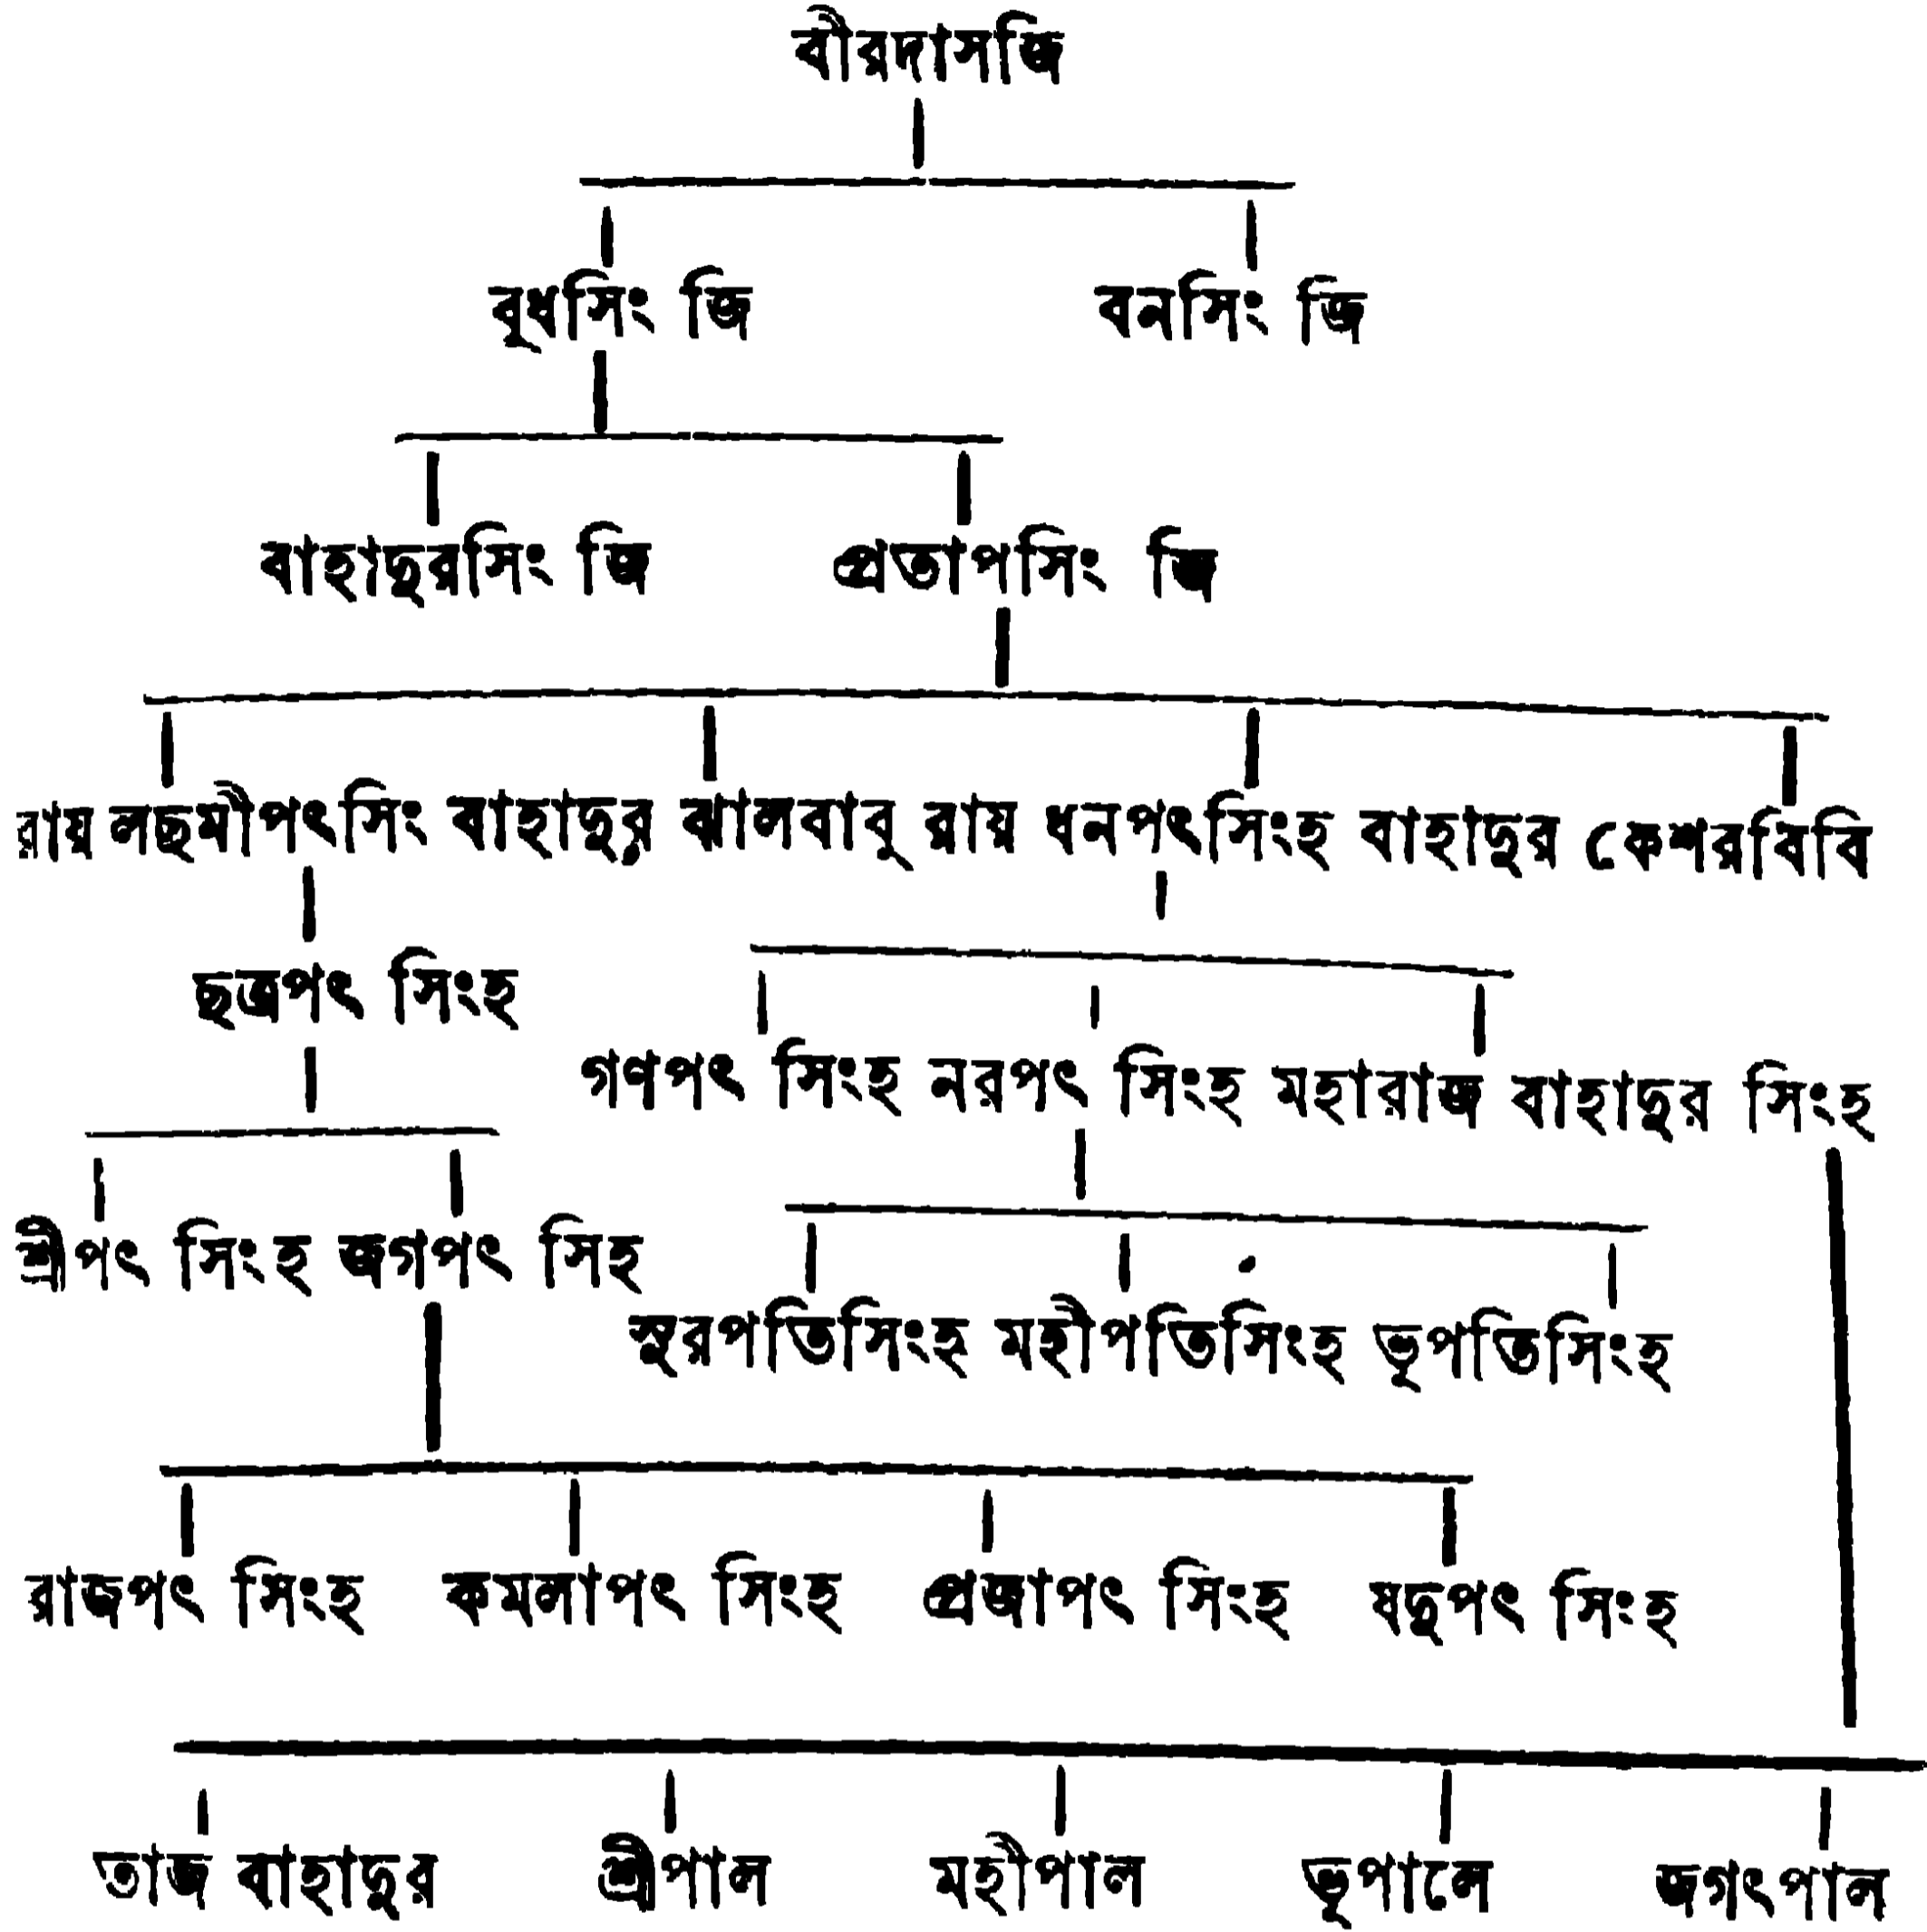 বীরদাসজি
বুধসিং জি বনসিং জি
বাহাদুরসিং জি প্রতাপসিং জি
রায় লছমীপৎসিং বাহাদুর ঝালবাবু রায় ধনপৎসিংহ বাহাদুর কেশরবিবি
ছত্রপৎ সিংহ
গণপৎ সিংহ নরপৎ সিংহ মহারাজ বাহাদুর সিংহ
শ্রীপৎ সিংহ জগপৎ সিহ
সুরপতিসিংহ মহীপতিসিংহ ভূপতিসিংহ
রাজপৎ সিংহ কমলাপৎ সিংহ প্রজাপৎ সিংহ যদুপৎ সিংহ
তাজ বাহাদুর শ্রীপাল মহীপাল ভূপালে জগৎপাল